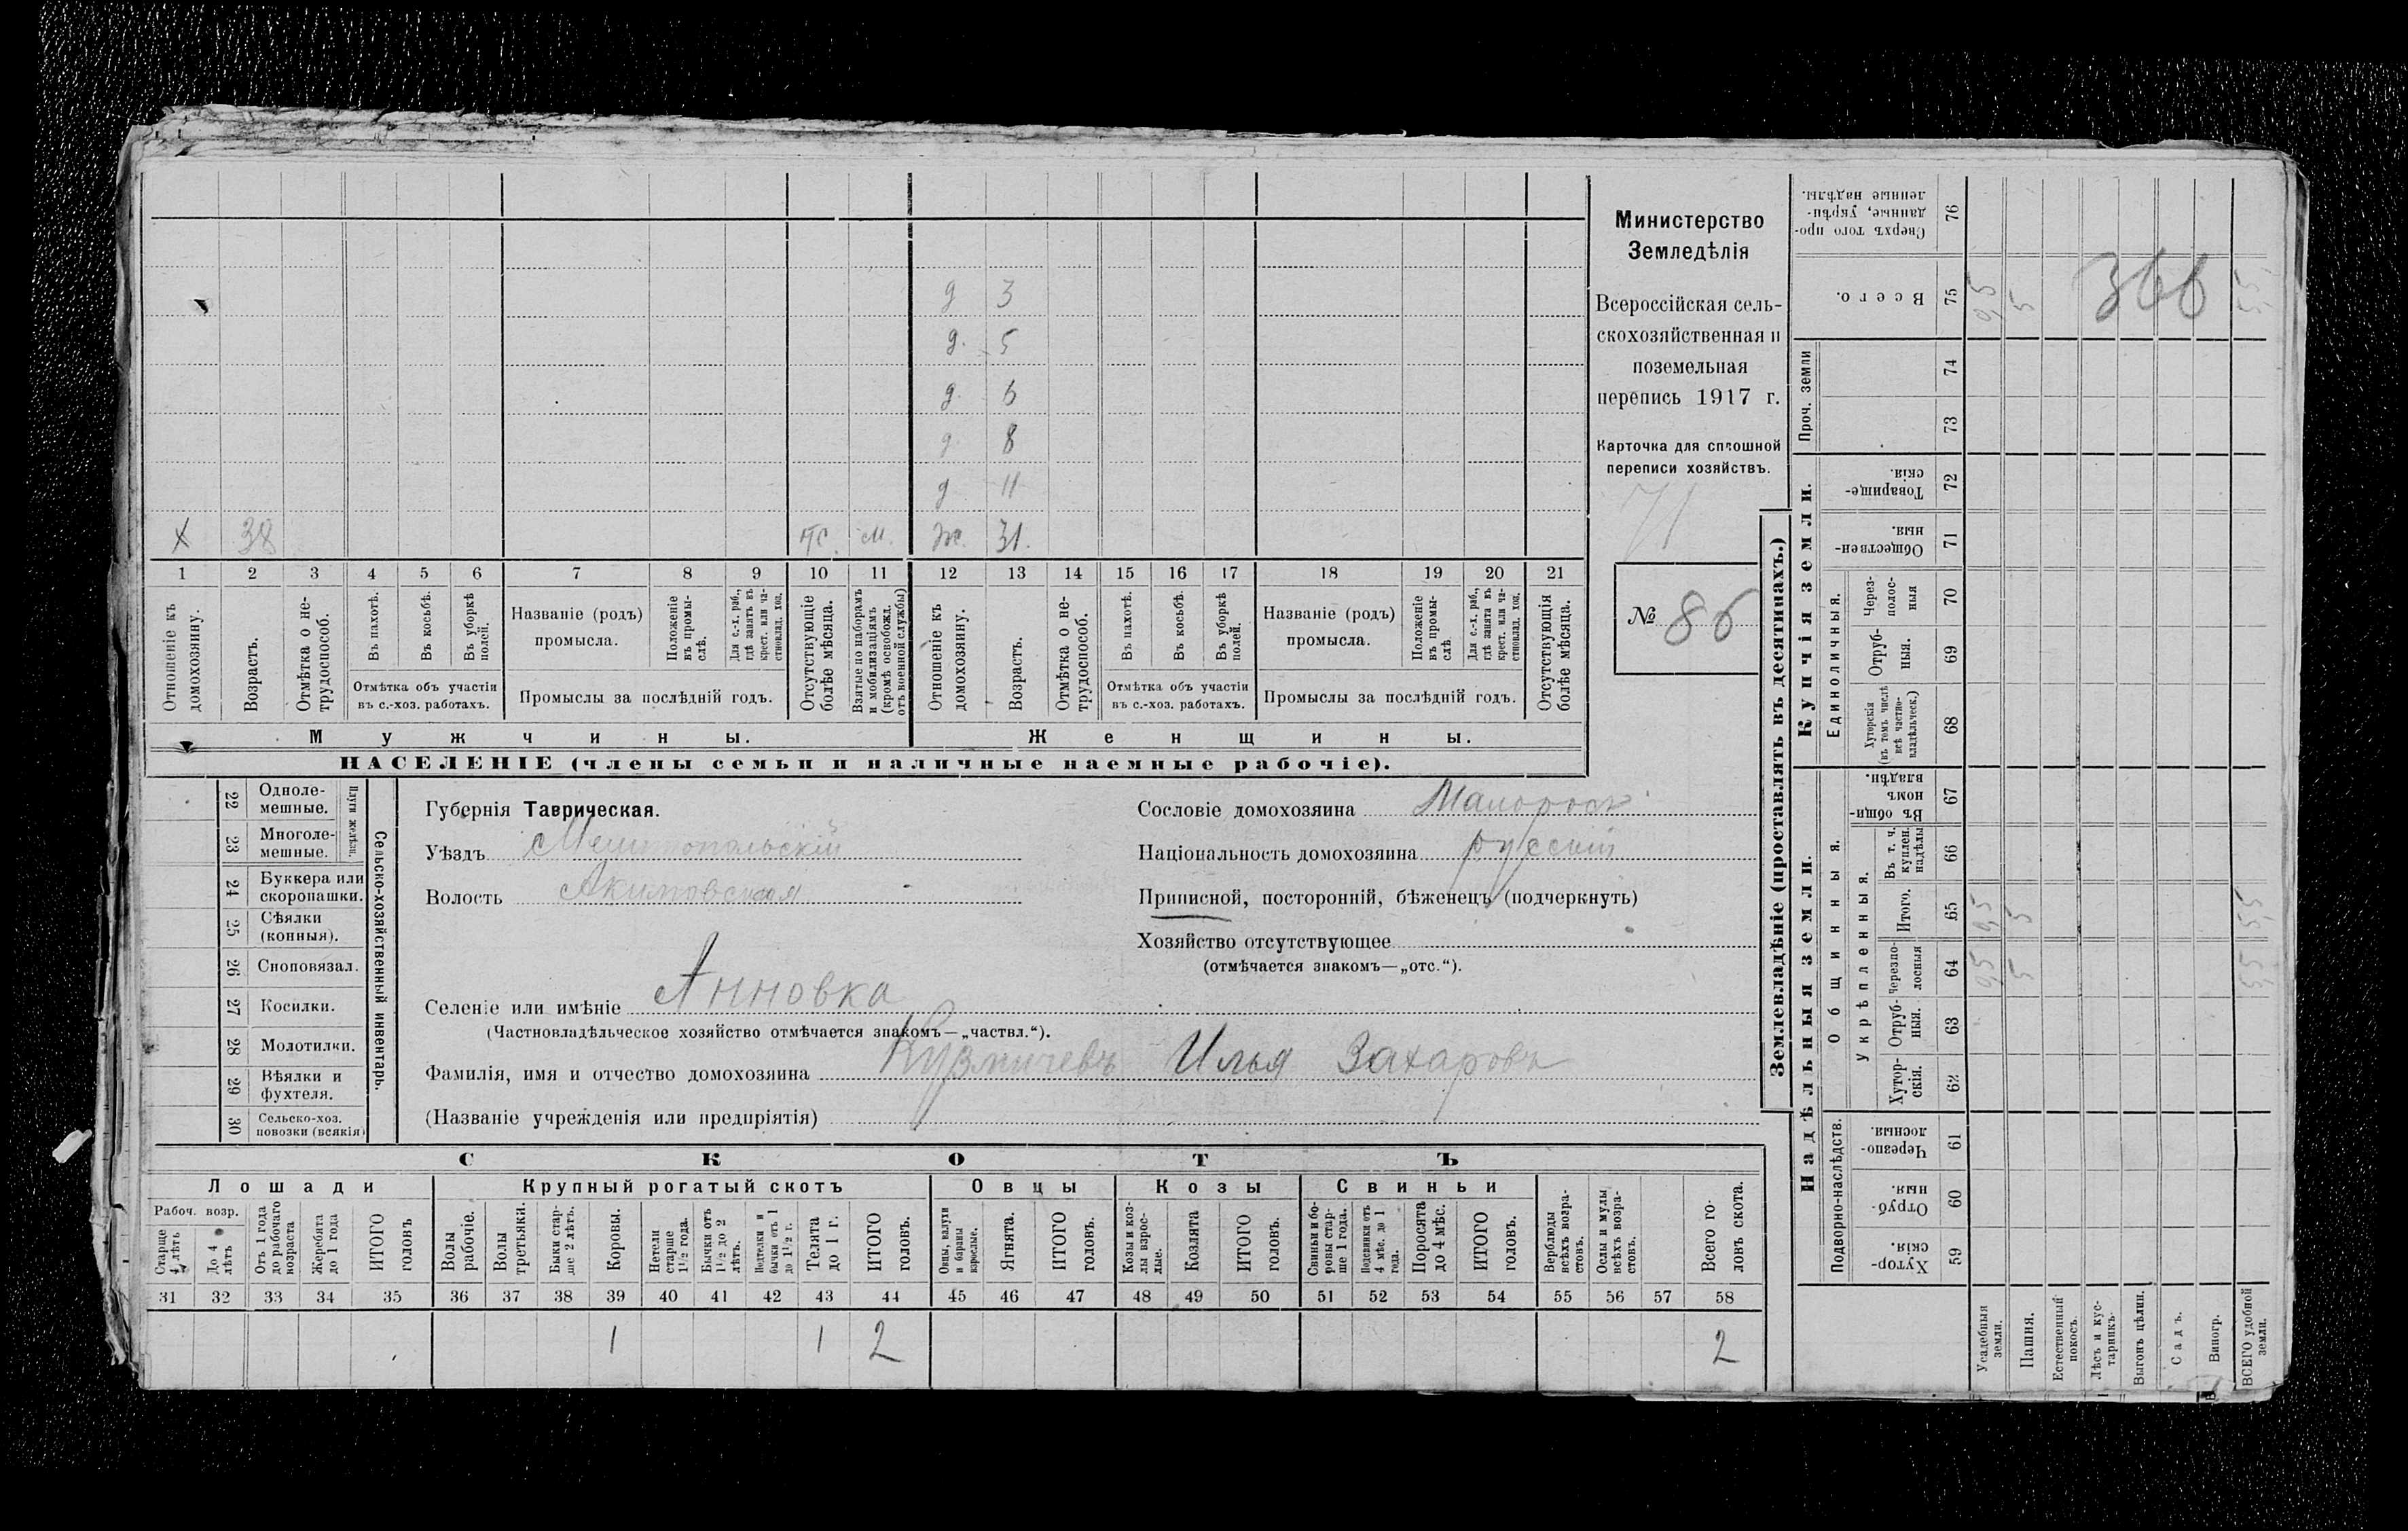 д 3
д. 5
д. 6
д 8
д 11
х 38 тс. м. ж. 31.
1 2 3 4 5 6 7 8 9 10 11 12 13 14 15 16 17 18 19 20 21
Отношеніе къ домохозяину.
Возрастъ.
Отмѣтка о не-трудоспособ.
Въ пахотѣ.
Въ косьбѣ.
Въ уборкѣ полей.
Отмѣтка объ участіи
въ с.-хоз. работахъ.
Названіе (родъ)
промысла.
Положеніе въ промы-слѣ.
Для с.-х. раб., гдѣ занятъ въ крест. или ча-стновлад. хоз.
Промыслы за послѣдній годъ.
Отсутствующіе болѣе мѣсяца.
Взятые по наборамъ и мобилизаціямъ (кромѣ освобожд. отъ военной службы)
Отношеніе къ домохозяину.
Возрастъ.
Отмѣтка о не-трудоспособ.
Въ пахотѣ.
Въ косьбѣ.
Въ уборкѣ полей.
Отмѣтка объ участіи
въ с.-хоз. работахъ.
Названіе (родъ)
промысла.
Положеніе въ промы-слѣ.
Для с.-х. раб., гдѣ занята въ крест. или ча-стновлад. хоз.
Промыслы за послѣдній годъ.
Отсутствующія болѣе мѣсяца.
Мужчины.
Женщины.
НАСЕЛЕНІЕ (члены семьи и наличные наемные рабочіе).
Министерство
Земледѣлія
Всероссійская сель-
скохозяйственная и
поземельная
перепись 1917 г.
Карточка для сплошной
переписи хозяйствъ.
71
№ 86
22 Одноле-мешные.
23 Многоле-мешные.
Плуги желѣзн.
24 Буккера или скоропашки.
25 Сѣялки (конныя).
26 Сноповязал.
27 Косилки.
28 Молотилки.
29 Вѣялки и фухтеля.
30 Сельско-хоз. повозки (всякія)
Сельско-хозяйственный инвентарь.
Губернія Таврическая.
Уѣздъ Мелитопольскій
Волость Акимовская
Селеніе или имѣніе Анновка
(Частновладѣльческое хозяйство отмѣчается знакомъ—„частвл.“).
Фамилія, имя и отчество домохозяина Кузмичевъ Илья Захаровъ
(Названіе учрежденія или предпріятія)
Сословіе домохозяина Малоросъ
Національность домохозяина русскій
Приписной, посторонній, бѣженецъ (подчеркнуть)
Хозяйство отсутствующее
(отмѣчается знакомъ—„отс.“).
СКОТЪ
Лошади
Крупный рогатый скотъ
Овцы
Козы
Свиньи
Рабоч. возр.
Старше 4 лѣтъ
До 4 лѣтъ
Отъ 1 года до рабочаго возраста
Жеребята до 1 года
ИТОГО головъ
Волы рабочіе.
Волы третьяки.
Быки стар-ше 2 лѣтъ.
Коровы.
Нетели старше 1 1/2 года.
Бычки отъ 1 1/2 до 2 лѣтъ.
Подтелки и бычки отъ 1 до 1 1/2 г.
Телята до 1 г.
ИТОГО головъ.
Овцы, валухи и бараны взрослые.
Ягнята.
ИТОГО головъ.
Козы и коз-лы взрос-лые.
Козлята
ИТОГО головъ.
Свиньи и бо-ровы стар-ше 1 года.
Подсвинки отъ 4 мѣс. до 1 года.
Поросята до 4 мѣс.
ИТОГО головъ.
Верблюды всѣхъ возра-стовъ.
Ослы и мулы всѣхъ возра-стовъ.
Всего го-ловъ скота.
31 32 33 34 35 36 37 38 39 40 41 42 43 44 45 46 47 48 49 50 51 52 53 54 55 56 57 58
1 1 2 2
Землевладѣніе (проставлять въ десятинахъ.)
Надѣльныя земли.
Купчія земли.
Проч. земли
Подворно-наслѣдств.
Общинныя.
Укрѣпленныя.
Единоличныя.
Сверхъ того про-данные, укрѣп-ленные надѣлы. 76
Всего. 75 9,5 5 5,5
366
74
73
Товарище-скія. 72
Обществен-ныя. 71
Через-полос-ныя 70
Отруб-ныя. 69
Хуторскія (въ томъ числѣ всѣ частно-владѣльческ.) 68
Въ общи-номъ владѣн. 67
Въ т. ч. куплен. надѣлы 66
Итого. 65 9,5 5 5,5
Черезпо-лосныя 64 9,5 5 5,5
Отруб-ныя. 63
Хутор-скія. 62
Черезпо-лосныя. 61
Отруб-ныя. 60
Хутор-скія. 59
Усадебныя земли.
Пашня.
Естественный покосъ.
Лѣсъ и кус-тарникъ.
Выгонъ цѣлин.
Садъ.
Виногр.
ВСЕГО удобной земли.